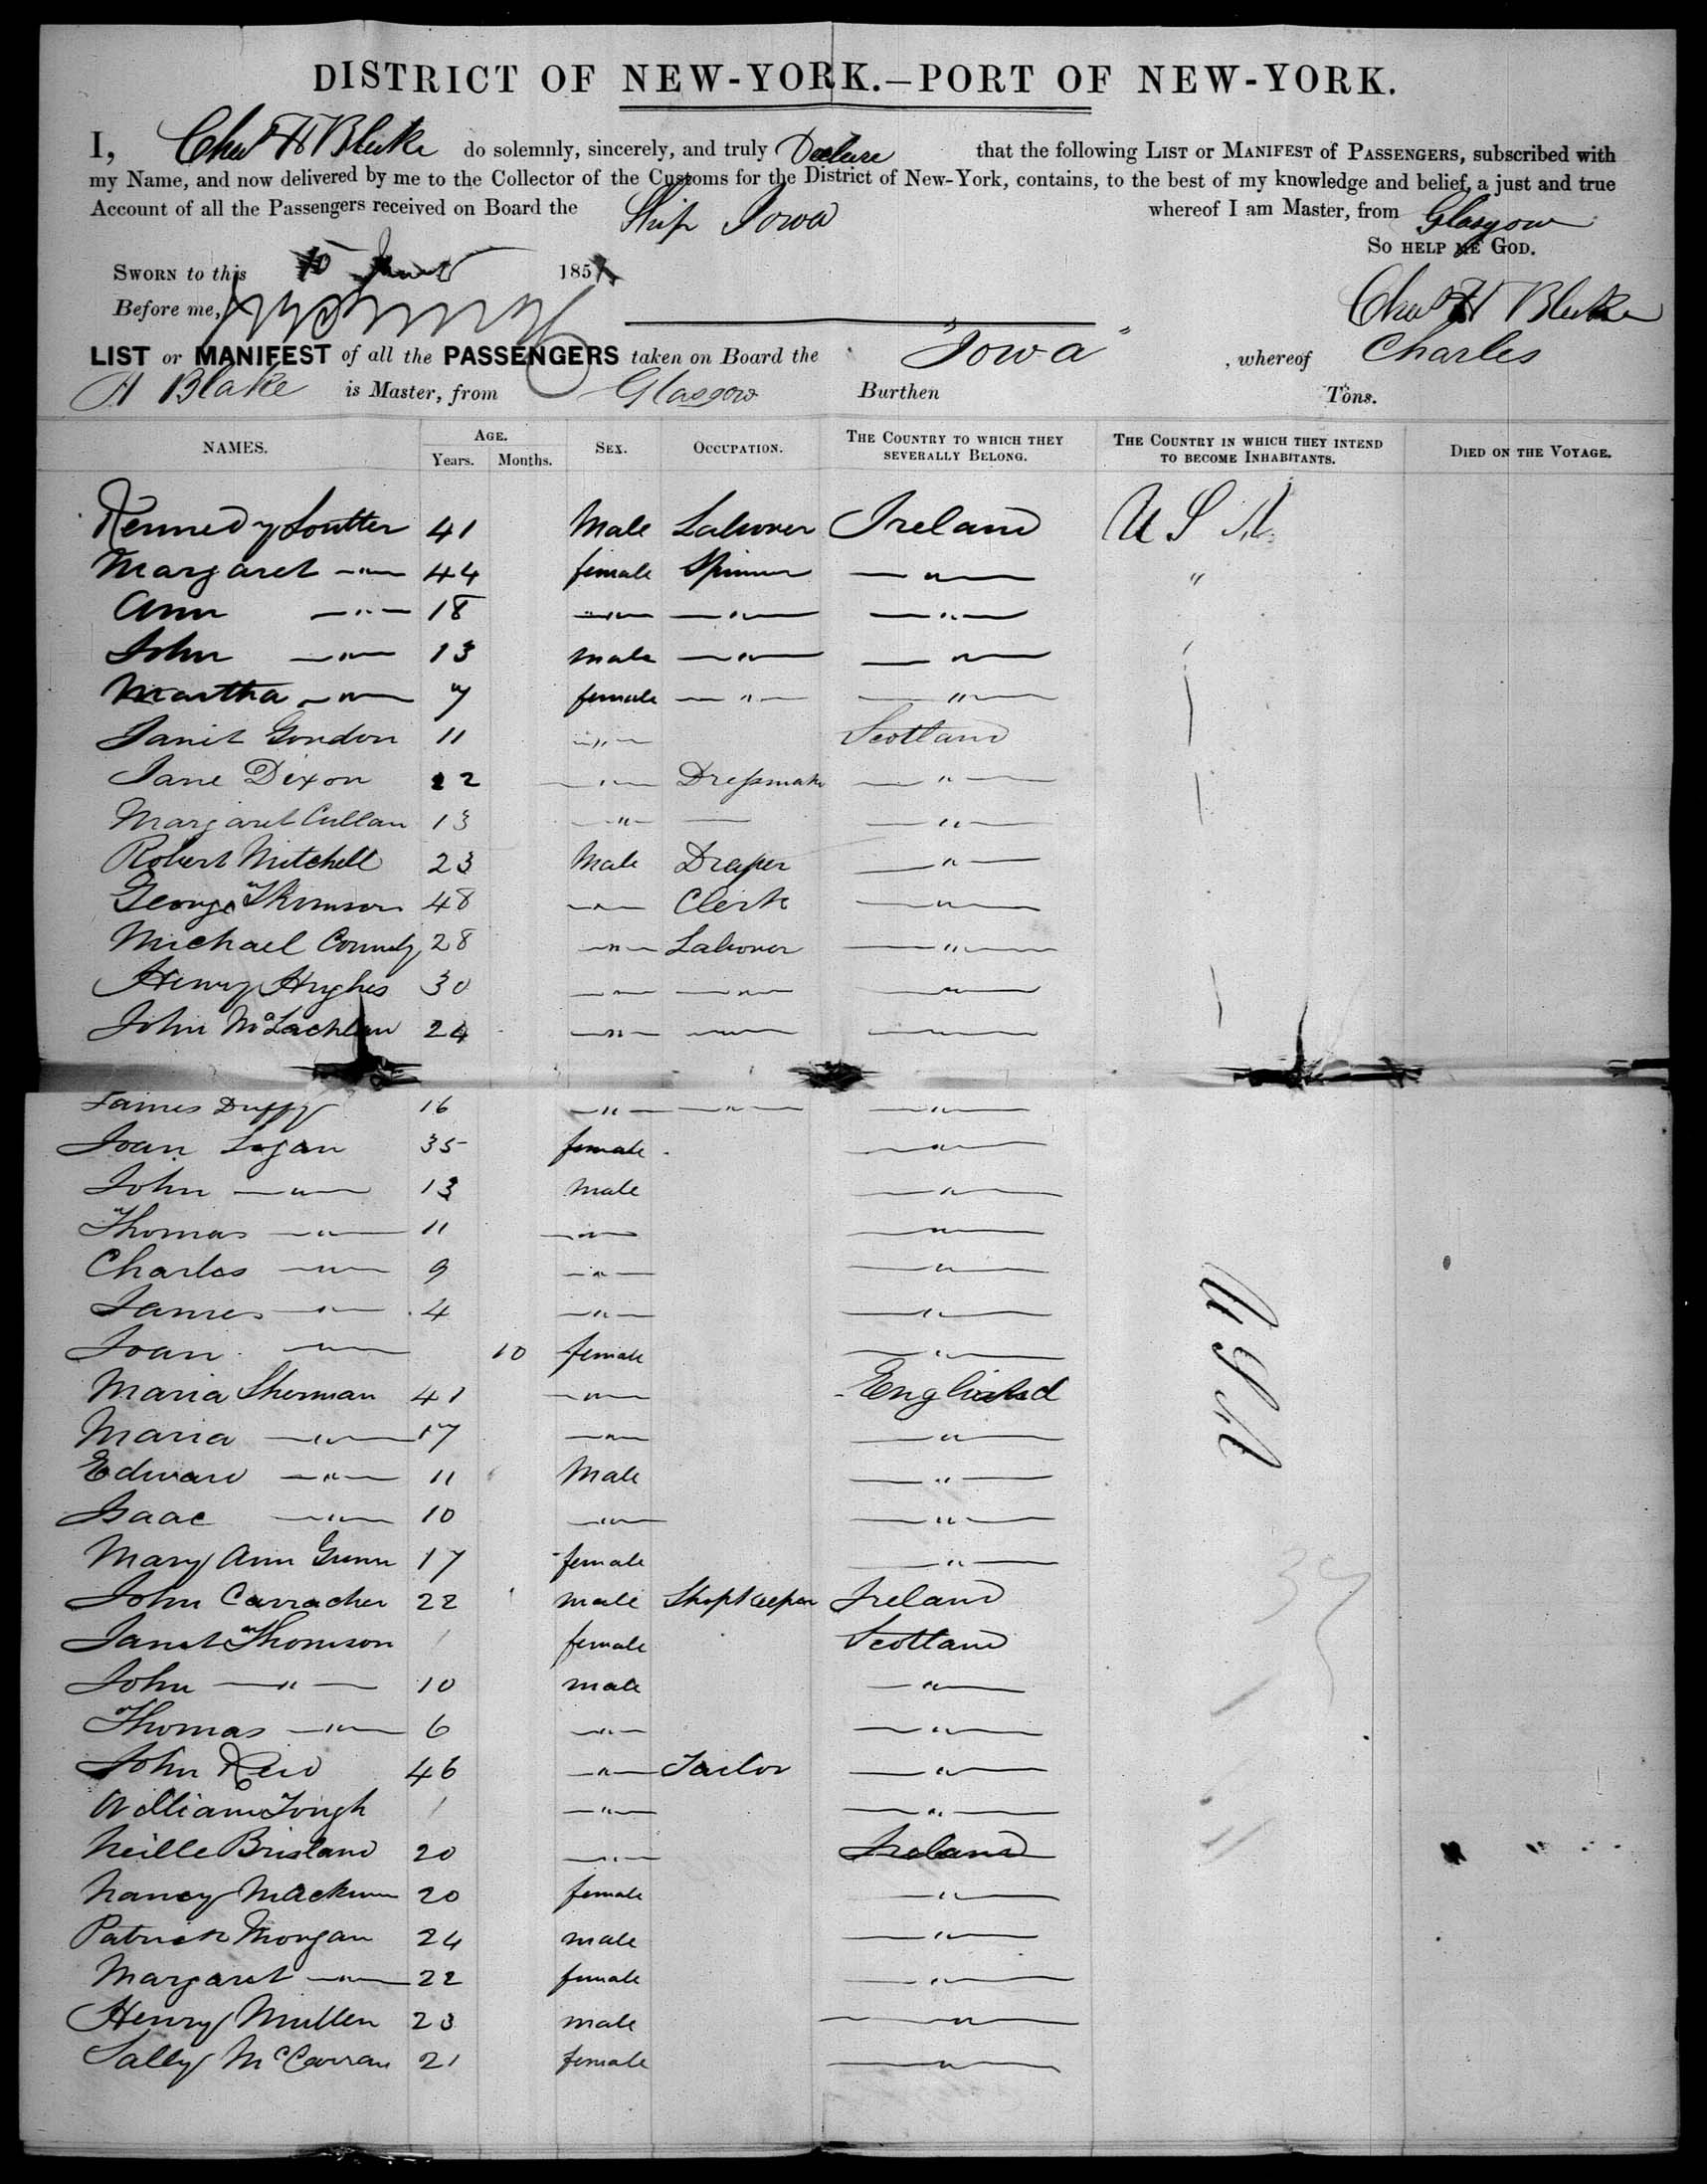 DISTRICT OF NEW-YORK.—PORT OF NEW-YORK.
I, Chas H Blake do solemnly, sincerely, and truly Declare that the following LIST or MANIFEST of PASSENGERS, subscribed with
my Name, and now delivered by me to the Collector of the Customs for the District of New-York, contains, to the best of my knowledge and belief, a just and true
Account of all the Passengers received on Board the Ship Iowa whereof I am Master, from Glasgow
SO HELP ME GOD.
SWORN to this 10 June 185
Chas H Blake
Before me,
LIST or MANIFEST of all the PASSENGERS taken on Board the "Iowa", whereof Charles
H Blake is Master, from Glasgow Burthen Tons.
NAMES. AGE. Years. Months. SEX. OCCUPATION. THE COUNTRY TO WHICH THEY SEVERALLY BELONG. THE COUNTRY IN WHICH THEY INTEND TO BECOME INHABITANTS. DIED ON THE VOYAGE.
Kennedy Soutter 41 Male Laborer Ireland U S A.
Margaret —"— 44 female Spinner —"— "
Ann —"— 18 —"— —"— —"—
John —"— 13 male —"— —"—
Martha —"— 7 female —"— —"—
Janet Gordon 11 —"— Scotland
Jane Dixon 22 —"— Dressmaker —"—
Margaret Cullan 13 —"— — —"—
Robert Mitchell 23 Male Draper —"—
George Thomson 48 —"— Clerk —"—
Michael Connely 28 —"— Laborer —"—
Henry Hughes 30 —"— —"— —"—
John McLachlan 24 —"— —"— —"—
James Duffy 16 —"— —"— —"—
Joan Logan 35 female —"—
John —"— 13 Male —"—
Thomas —"— 11 —"— —"—
Charles —"— 9 —"— —"—
James —"— 4 —"— —"—
Joan —"— 10 female —"—
Maria Sherman 41 —"— England
Maria —"— 17 —"— —"—
Edward —"— 11 Male —"—
Isaac —"— 10 —"— —"—
Mary Ann Gunn 17 female —"—
John Carracher 22 male Shopkeeper Ireland
Janet Thomson female Scotland
John —"— 10 male —"—
Thomas —"— 6 —"— —"—
John Reid 46 —"— Tailor —"—
William Tough —"— —"—
Neille Brisland 20 —"— Ireland
Nancy 20 female —"—
Patrick Morgan 24 male —"—
Margaret —"— 22 female —"—
Henry Mullen 23 male —"—
Sally McCarran 21 female —"—
U S A